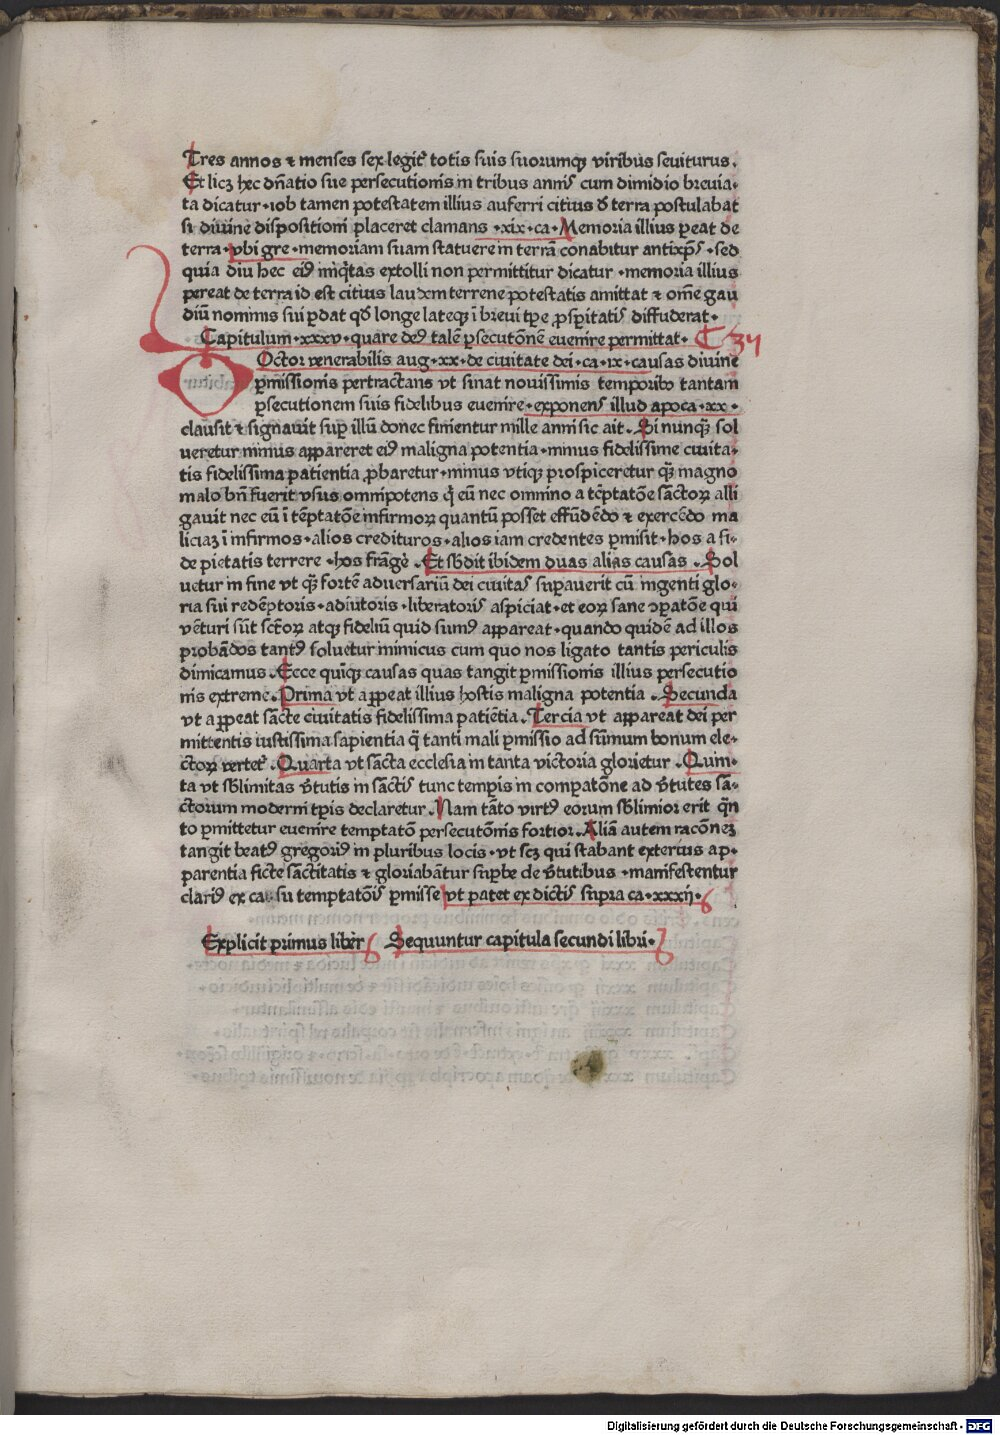 Tres annos ⁊ menses sex legit᷑ totis suis suorumqꝫ viribus seviturus.
Et licꝫ hec dn̄atio sue persecutionis in tribus annis cum dimidio brevia-
ta dicatur · iob tamen potestatem illius auferri citius d̄ terra postulabat
si divine dispositioni placeret clamans · xix · ca · Memoria illius ꝑeat de
terra · vbi gre · memoriam suam statuere in terrā conabitur antixp̄s · sed
quia diu hec eiꝰ iniq̇tas extolli non permittitur dicatur · memoria illius
pereat de terra id est citius laudem terrene potestatis amittat ⁊ om̄e gau
diū nominis sui ꝑdat qd̄ longe lateqꝫ ī brevi tꝑe ꝓsꝑitatis diffuderat ·
Capitulum · xxxv · quare deꝰ talē ꝑsecutōnē evenire permittat · C 34
Doctor venerabilis aug · xx · de civitate dei · ca · ix · causas divine
ꝑmissionis pertractans vt sinat novissimis temporibꝰ tantam
ꝑsecutionem suis fidelibus evenire · exponens illud apoca · xx ·
clausit ⁊ signavit suꝑ illū donec finientur mille anni sic ait · Si nunqꝫ sol
veretur minus appareret eiꝰ maligna potentia · minus fidelissime civita-
tis fidelissima patientia ꝓbaretur · minus vtiqꝫ prospiceretur qꝫ magno
malo bn̄ fuerit vsus omnipotens q̇ eū nec omnino a tēptatōe sāctoꝝ alli
gavit nec eū ī tēptatōe infirmoꝝ quantū posset effūdēdo ⁊ exercēdo ma
liciaꝫ ī infirmos · alios credituros · alios iam credentes ꝑmisit · hos a fi-
de pietatis terrere · hos frāgē · Et sb̄dit ibidem duas alias causas · Sol
vetur in fine vt qꝫ fortē adversariū dei civitas suꝑaverit cū ingenti glo-
ria sui redēptoris · adiutoris · liberatoris aspiciat · et eoꝝ sane ꝯꝑatōe qui
vēturi sūt sctōꝝ atqꝫ fideliū quid sumꝰ appareat · quando quidē ad illos
probādos tantꝰ soluetur inimicus cum quo nos ligato tantis periculis
dimicamus · Ecce quīqꝫ causas quas tangit ꝑmissionis illius persecutio
nis extreme · Prima vt aꝑpeat illius hostis maligna potentia · Secunda
vt aꝑpeat sācte civitatis fidelissima patiētia · Tercia vt appareat dei per
mittentis iustissima sapientia q̄ tanti mali ꝑmissio ad sūmum bonum ele-
ctoꝝ vertet᷑ · Quarta vt sācta ecclesia in tanta victoria glorietur · Quin-
ta vt sb̄limitas v̄tutis in sāctis tunc tempꝭis in comꝑatōne ad v̄tutes sa-
ctorum moderni tꝑis declaretur · Nam tāto virtꝰ eorum sb̄limior erit q̄n
to ꝑmittetur evenire temptatō persecutōnis fortior · Aliā autem racōneꝫ
tangit beatꝰ gregoriꝰ in pluribus locis · vt scꝫ qui stabant exterius ap-
parentia ficte sāctitatis ⁊ gloriabātur suꝑbe de v̄tutibus · manifestentur
clariꝰ ex casu temptatōis ꝑmisse vt patet ex dictis supra ca · xxxij ·
Explicit primus liber Sequuntur capitula secundi libri ·
Digitalisierung gefördert durch die Deutsche Forschungsgemeinschaft - DFG